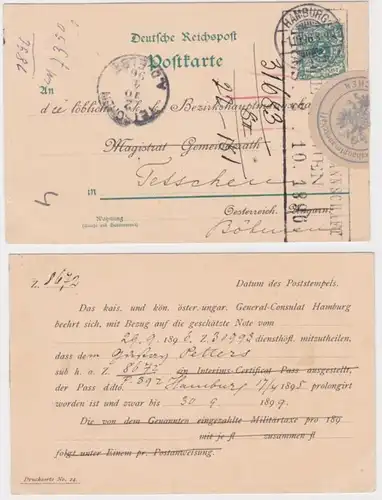 Deutsche Reichspost
Postkarte
HAMBURG
An
d ie löbliche Bezirkshauptmannschaft
Magistrat Gemeinderath
Tetschen
in
Oesterreich. Ungarn.
Böhmen
Wohnung
(Straße und Hausnummer)
31643
4
10.1896
Z. 8672
Datum des Poststempels.
Das kais. und kön. österr. ungar. General-Consulat Hamburg
beehrt sich, mit Bezug auf die geschätzte Note vom
29. 9. 1896 Z. 31992 diensthöfl. mitzutheilen,
dass dem Gustav Petters
sub h. a. Z. 8672 ein Interims-Certificat Pass ausgestellt,
der Pass ddto. Hamburg 17/4 1895 prolongirt
worden ist und zwar bis 30 9 1899.
Die von dem Genannten eingezahlte Militärtaxe pro 189
mit je fl zusammen fl
folgt unter Einem pr. Postanweisung.
Drucksorte No. 24.